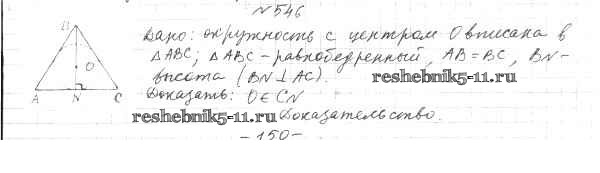 №546
Дано: окружность с центром O вписана в
△ABC; △ABC - равнобедренный, AB = BC, BN -
высота (BN ⊥ AC).
reshebnik5-11.ru
Доказать: O ∈ CN
reshebnik5-11.ru
Доказательство.
- 150 -
B
O
A N C